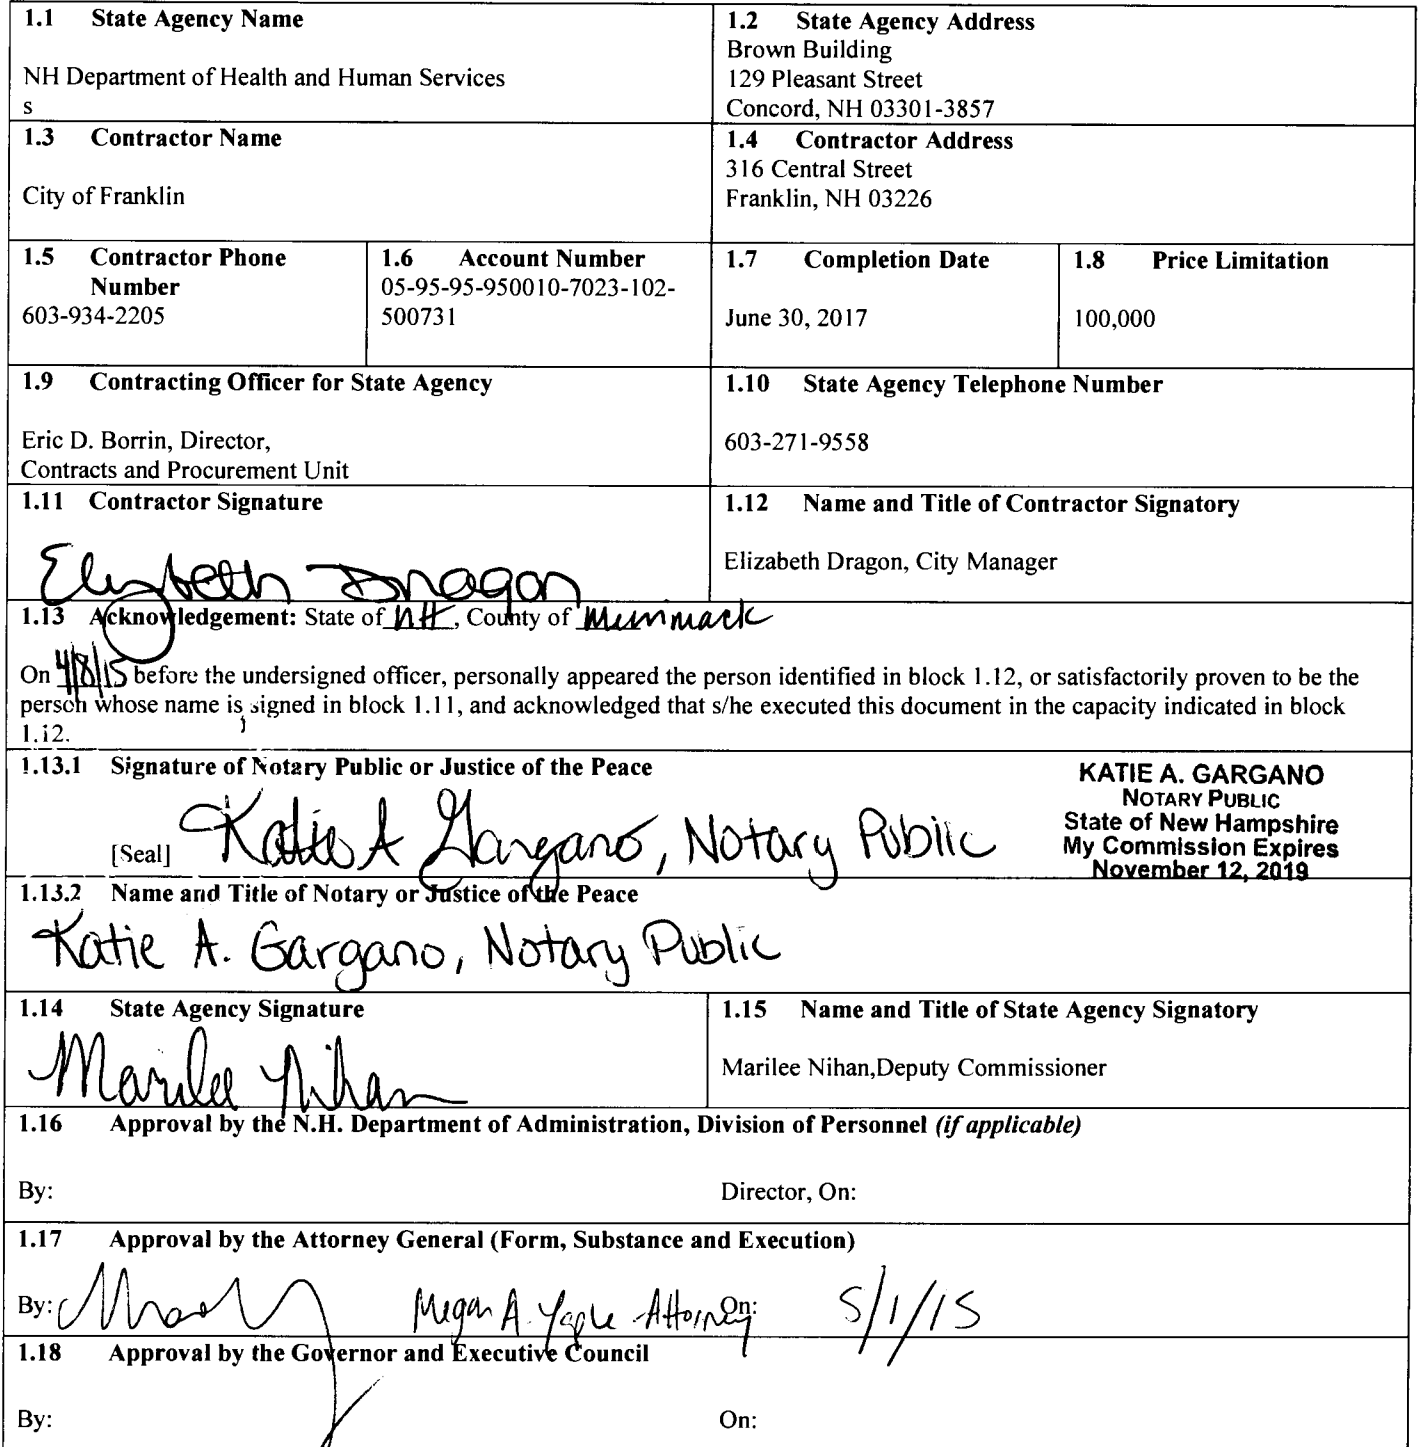 1.1 State Agency Name
NH Department of Health and Human Services
s
1.2 State Agency Address
Brown Building
129 Pleasant Street
Concord, NH 03301-3857
1.3 Contractor Name
City of Franklin
1.4 Contractor Address
316 Central Street
Franklin, NH 03226
1.5 Contractor Phone
Number
603-934-2205
1.6 Account Number
05-95-95-950010-7023-102-
500731
1.7 Completion Date
June 30, 2017
1.8 Price Limitation
100,000
1.9 Contracting Officer for State Agency
Eric D. Borrin, Director,
Contracts and Procurement Unit
1.10 State Agency Telephone Number
603-271-9558
1.11 Contractor Signature
Elizabeth Dragon
1.12 Name and Title of Contractor Signatory
Elizabeth Dragon, City Manager
1.13 Acknowledgement: State of NH, County of Merrimack
On 4/8/15 before the undersigned officer, personally appeared the person identified in block 1.12, or satisfactorily proven to be the
person whose name is signed in block 1.11, and acknowledged that s/he executed this document in the capacity indicated in block
1.12.
1.13.1 Signature of Notary Public or Justice of the Peace
[Seal] Katie A Gargano, Notary Public
KATIE A. GARGANO
NOTARY PUBLIC
State of New Hampshire
My Commission Expires
November 12, 2019
1.13.2 Name and Title of Notary or Justice of the Peace
Katie A. Gargano, Notary Public
1.14 State Agency Signature
Marilee Nihan
1.15 Name and Title of State Agency Signatory
Marilee Nihan,Deputy Commissioner
1.16 Approval by the N.H. Department of Administration, Division of Personnel (if applicable)
By: Director, On:
1.17 Approval by the Attorney General (Form, Substance and Execution)
By: Megan A. Yaple Attorney On: 5/1/15
1.18 Approval by the Governor and Executive Council
By: On: